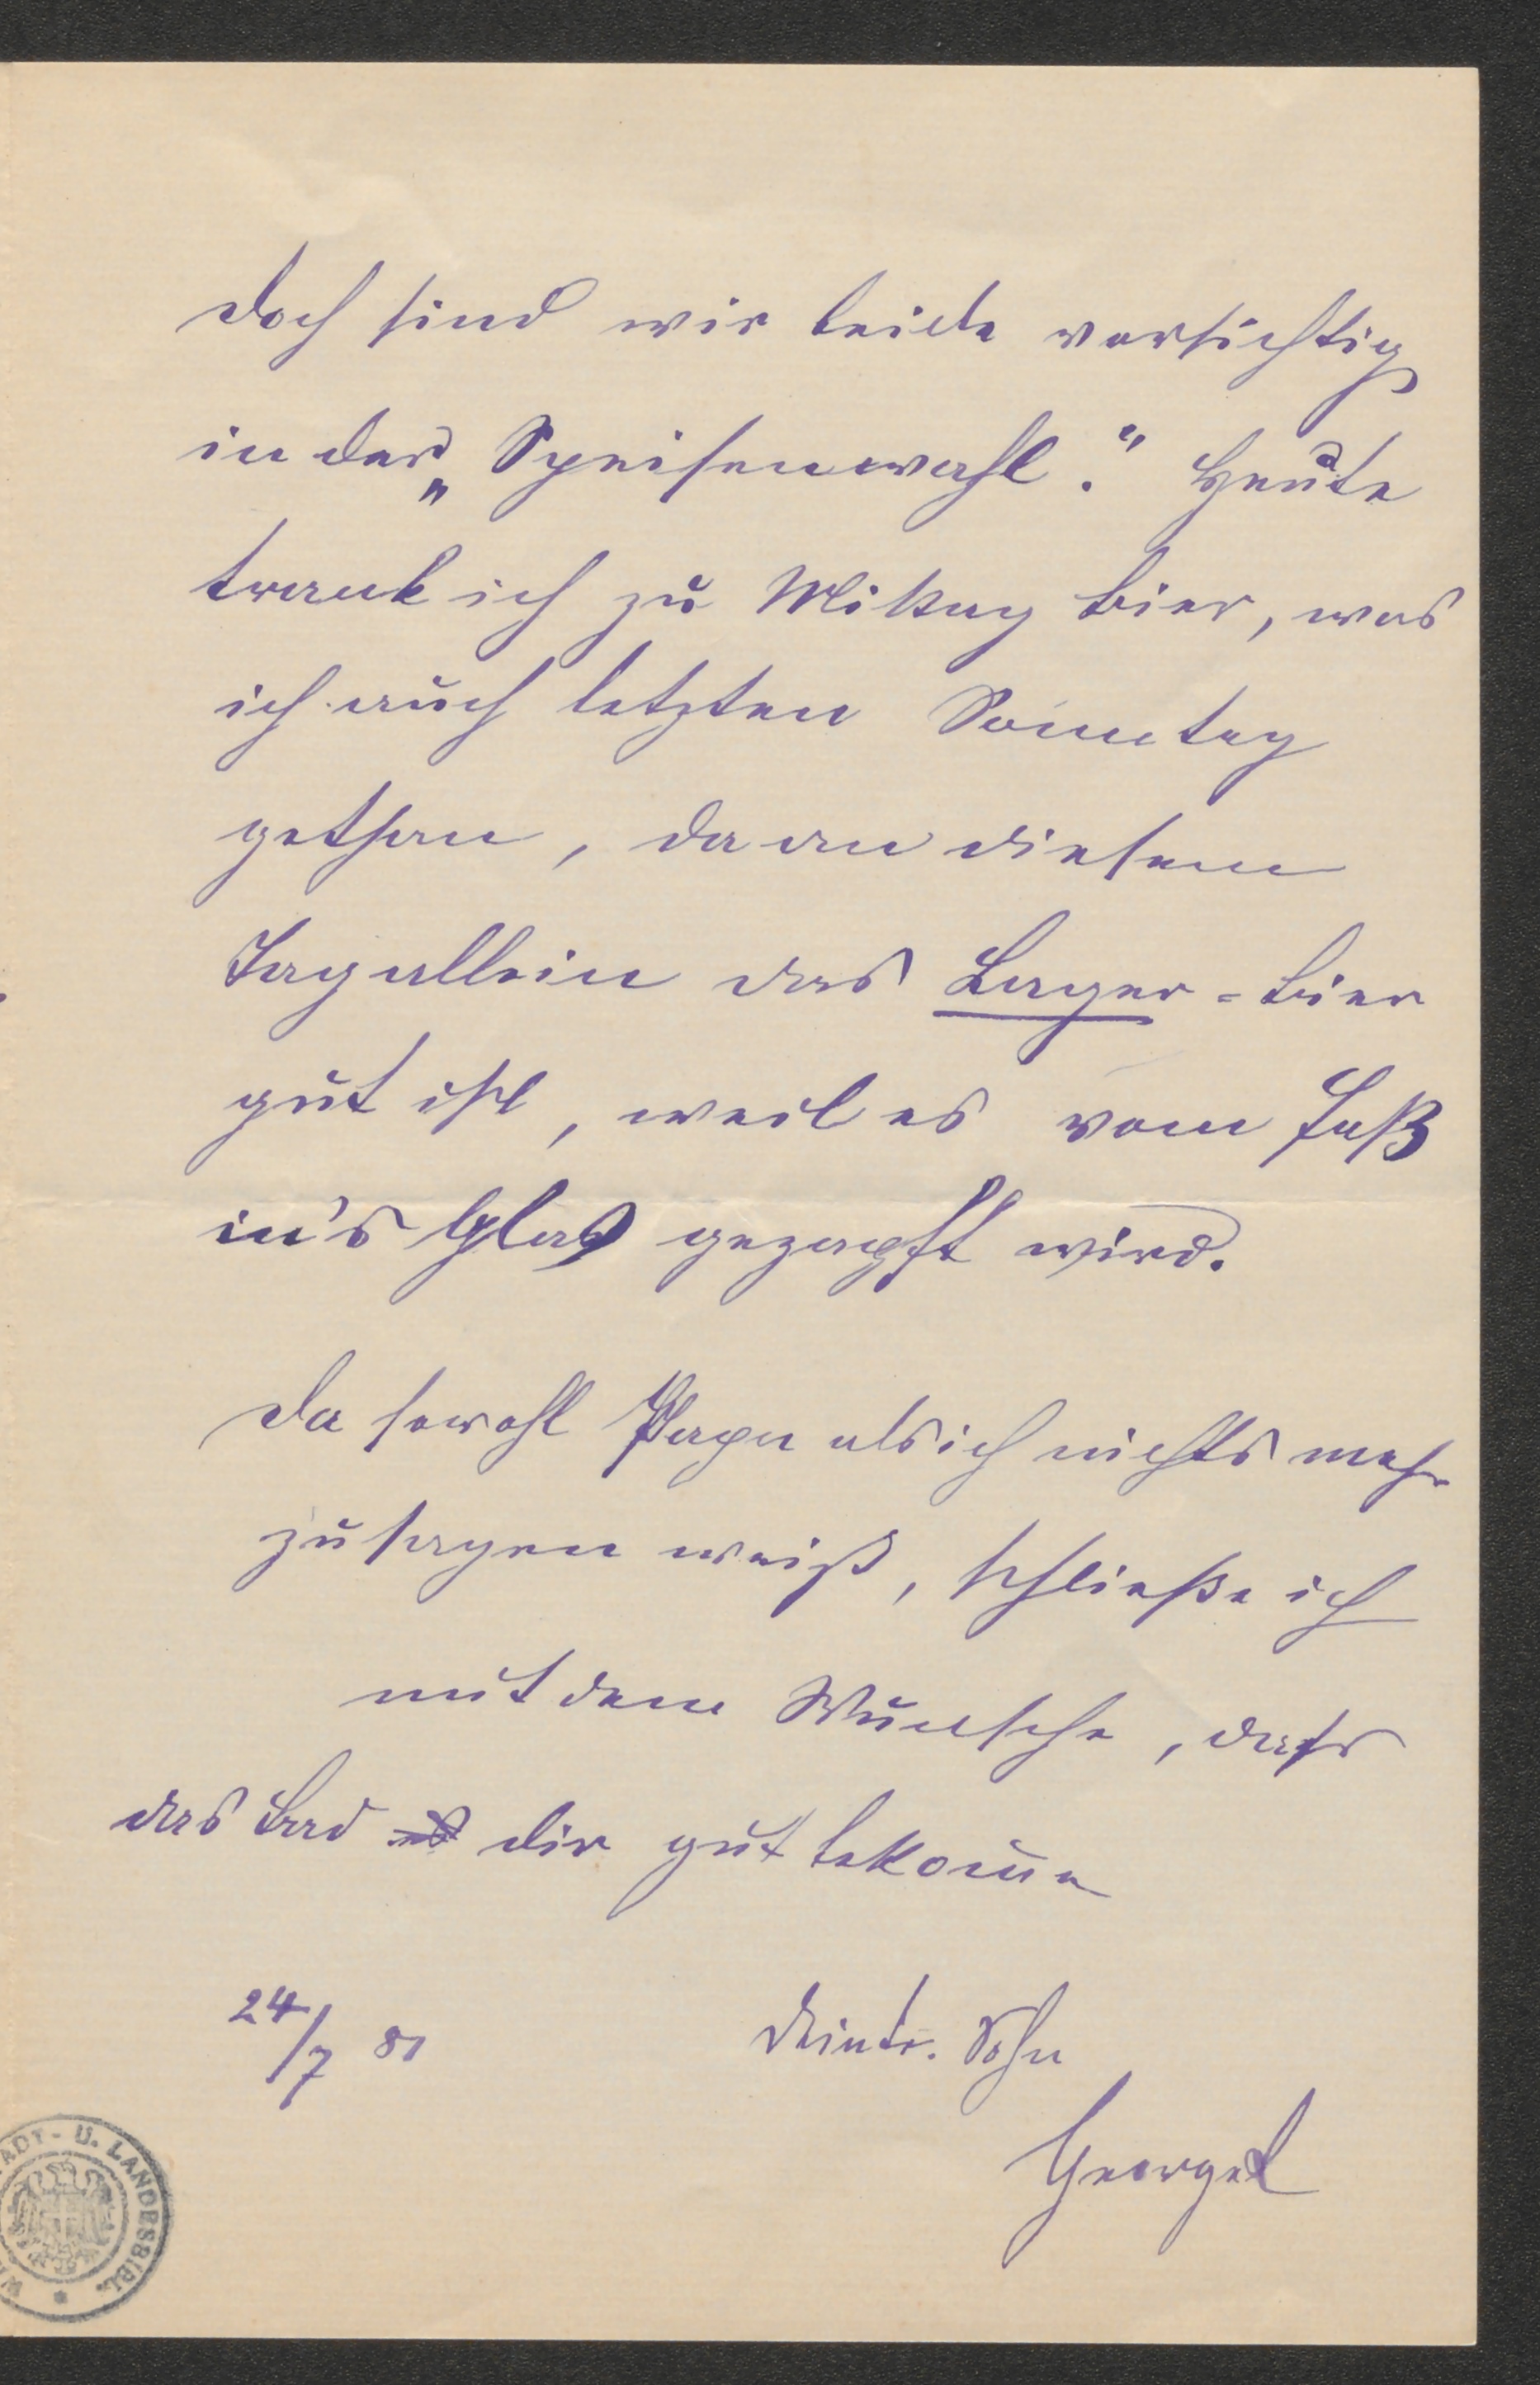 doch sind wir beide vorsichtig
in der „Speisenwahl.“ Heute
trank ich zu Mittag Bier, was
ich auch letzten Son̄tag
gethan, da an diesem
Tag allein das Lager-bier
gut ist, weil es vom Faß
in's Glas gezapft wird.
Da sowohl Papa als ich nichts mehr
zu sagen weiß, schließe ich
mit dem Wunsche, dass
das Bad dir gut bekom̄e
24/7 81
Dein tr. Sohn
Georgel
ADT- U. LANDESBIBL.